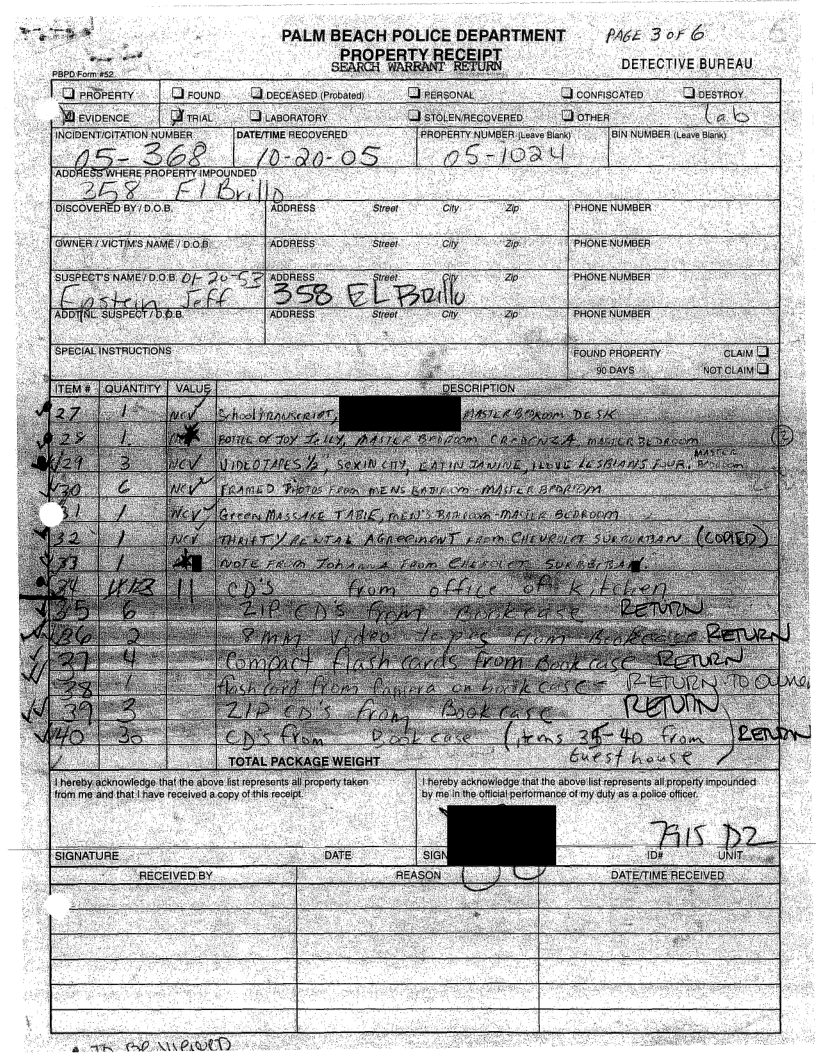 PALM BEACH POLICE DEPARTMENT PAGE 3 OF 6
PROPERTY RECEIPT
SEARCH WARRANT RETURN DETECTIVE BUREAU
PBPD Form #52
PROPERTY FOUND DECEASED (Probated) PERSONAL CONFISCATED DESTROY
EVIDENCE TRIAL LABORATORY STOLEN/RECOVERED OTHER Lab
INCIDENT/CITATION NUMBER DATE/TIME RECOVERED PROPERTY NUMBER (Leave Blank) BIN NUMBER (Leave Blank)
05-368 10-20-05 05-1024
ADDRESS WHERE PROPERTY IMPOUNDED
358 El Brillo
DISCOVERED BY / D.O.B. ADDRESS Street City Zip PHONE NUMBER
OWNER / VICTIM'S NAME / D.O.B. ADDRESS Street City Zip PHONE NUMBER
SUSPECT'S NAME / D.O.B. 01-20-53 ADDRESS Street City Zip PHONE NUMBER
Epstein Jeff 358 EL Brillo
ADDTNL. SUSPECT / D.O.B. ADDRESS Street City Zip PHONE NUMBER
SPECIAL INSTRUCTIONS FOUND PROPERTY CLAIM
90 DAYS NOT CLAIM
ITEM # QUANTITY VALUE DESCRIPTION
27 1 NCV School TRANSCRIPT, MASTER BEDROOM DESK
28 1. BOTTLE OF JOY JELLY, MASTER BEDROOM CREDENZA, MASTER BEDROOM
29 3 NCV VIDEOTAPES 1/2, SEX IN CITY, LATIN JANINE, I LOVE LESBIANS FOUR, MASTER Bedroom
30 6 NCV FRAMED PHOTOS FROM MENS BATHROOM - MASTER BEDROOM
31 1 NCV Green MASSAGE TABLE, MEN'S BATHROOM - MASTER BEDROOM
32 1 NCV THRIFTY RENTAL AGREEMENT FROM CHEVROLET SUBURBAN (COPIED)
33 1 NOTE FROM JOHANNA FROM CHEVROLET SUBURBAN.
34 11 CD'S from office of kitchen
35 6 ZIP CD'S from Bookcase RETURN
36 2 8mm Video tapes from Bookcase RETURN
37 4 Compact flash cards from Book case RETURN
38 1 flash card from Camera on book case - RETURN TO Owner
39 3 ZIP CD'S from Bookcase RETURN
40 30 CD's from Bookcase (items 35-40 from guest house) RETURN
TOTAL PACKAGE WEIGHT
I hereby acknowledge that the above list represents all property taken from me and that I have received a copy of this receipt.
I hereby acknowledge that the above list represents all property impounded by me in the official performance of my duty as a police officer.
7915 D2
SIGNATURE DATE SIGN ID# UNIT
RECEIVED BY REASON DATE/TIME RECEIVED
TO BE VIEWED